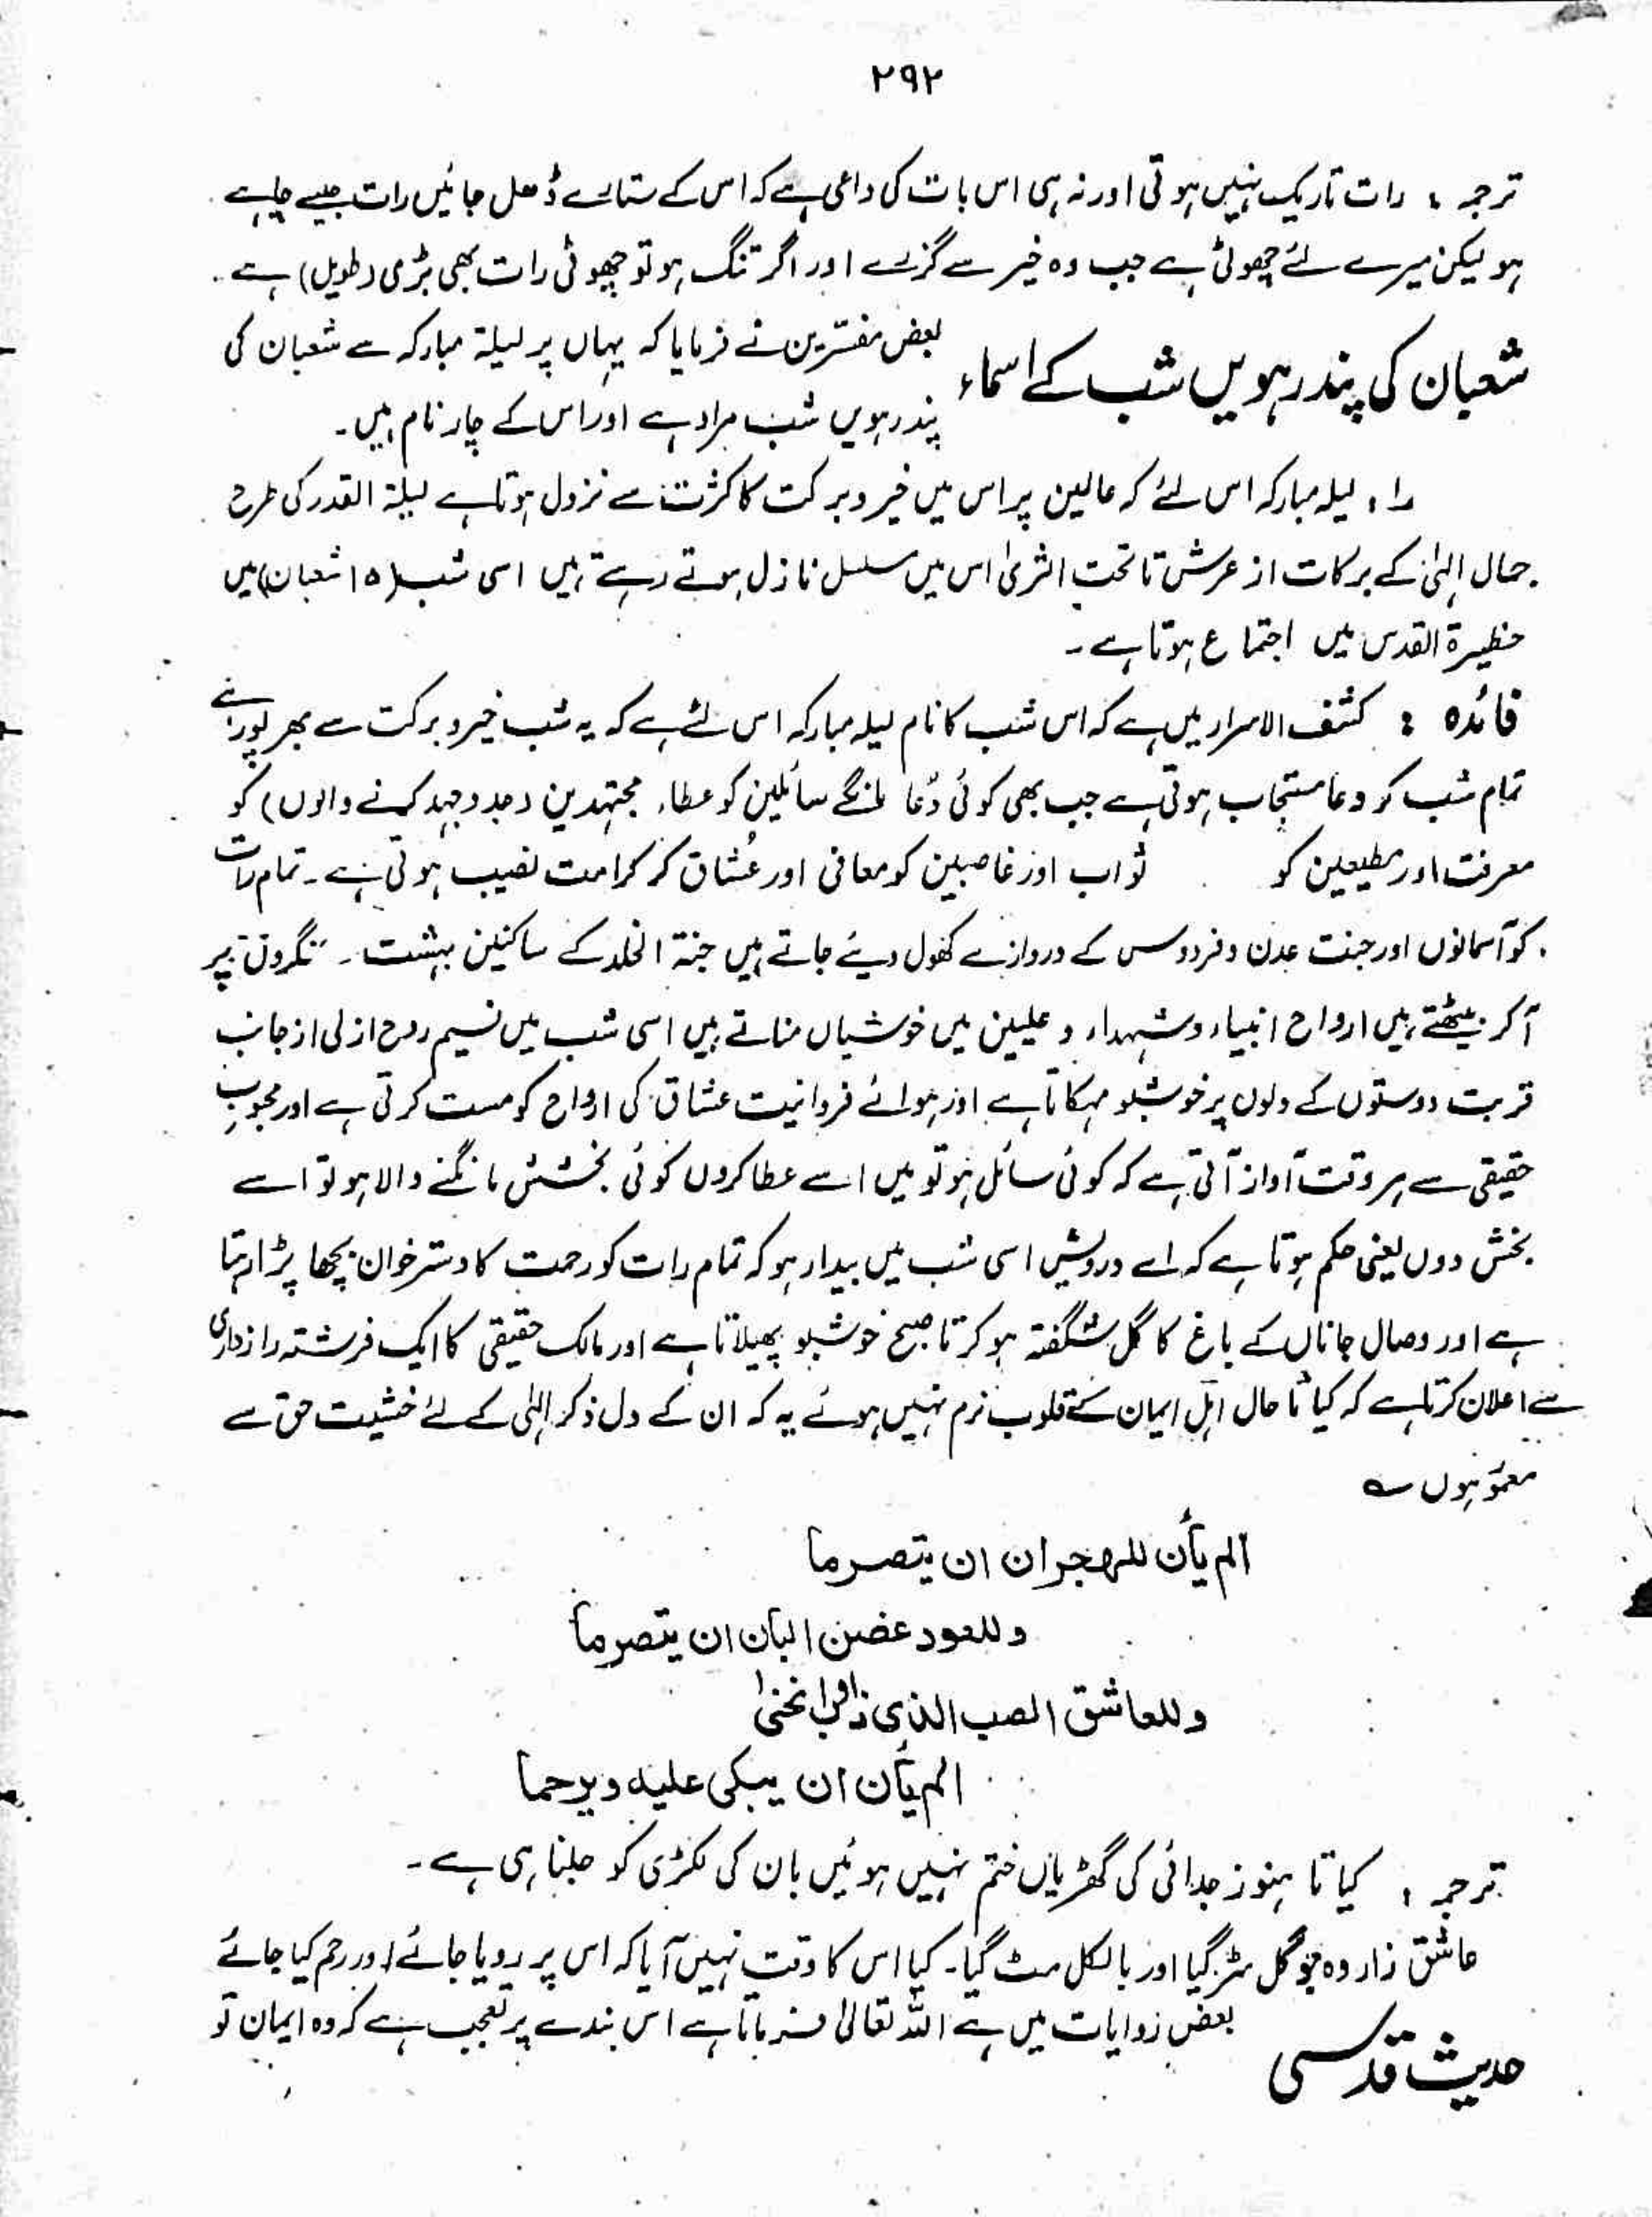 ۲۹۲
ترجمہ : رات تاریک نہیں ہوتی اور نہ ہی اس بات کی داعی ہے کہ اس کے ستارے ڈھل جائیں رات جیسے چاہے
ہو لیکن میرے لئے چھوٹی ہے جب وہ خیر سے گزرے اور اگر تنگ ہو تو چھوٹی رات بھی بڑی (طویل) ہے ۔
شعبان کی پندرہویں شب کے اسماء
بعض مفسّرین نے فرمایا کہ یہاں پر لیلۃ مبارکہ سے شعبان کی
پندرہویں شب مراد ہے اور اس کے چار نام ہیں ۔
(۱) لیلہ مبارکہ اس لئے کہ عالمین پر اس میں خیر و برکت کا کثرت سے نزول ہوتا ہے لیلۃ القدر کی طرح
جمال الہٰی کے برکات از عرش تا تحت الثریٰ اس میں مسلسل نازل ہوتے رہتے ہیں اسی شب (۱۵ شعبان) میں
حظیرۃ القدس میں اجتماع ہوتا ہے ۔
فائدہ : کشف الاسرار میں ہے کہ اس شب کا نام لیلہ مبارکہ اس لئے ہے کہ یہ شب خیر و برکت سے بھر پور ہے
تمام شب کو دعا مستجاب ہوتی ہے جب بھی کوئی دُعا مانگے سائلین کو عطاء مجتہدین (جدوجہد کرنے والوں) کو
معرفت اور مطیعین کو ثواب اور عاصیین کو معافی اور عُشاق کو کرامت نصیب ہوتی ہے ۔ تمام رات
کو آسمانوں اور جنت عدن و فردوس کے دروازے کھول دیئے جاتے ہیں جنۃ الخلد کے ساکنین بہشت کنگروں پر
آکر بیٹھتے ہیں ارواح انبیاء و شہداء و علیین میں خوشیاں مناتے ہیں اسی شب میں نسیم روح ازلی از جانب
قربت دوستوں کے دلوں پر خوشبو مہکاتا ہے اور ہوائے فردانیت عشاق کی ارواح کو مست کرتی ہے اور محبوبِ
حقیقی سے ہر وقت آواز آتی ہے کہ کوئی سائل ہو تو میں اسے عطا کروں کوئی بخشش مانگنے والا ہو تو اسے
بخش دوں یعنی حکم ہوتا ہے کہ اے درویش اسی شب میں بیدار ہو کہ تمام رات کو رحمت کا دسترخوان بچھا پڑا رہتا
ہے اور وصال جاناں کے باغ کا گل شگفتہ ہو کر تا صبح خوشبو پھیلاتا ہے اور مالک حقیقی کا ایک فرشتہ رازداری
سے اعلان کرتا ہے کہ کیا تا حال اہل ایمان کے قلوب نرم نہیں ہوئے یہ کہ ان کے دل ذکر الہٰی کے لئے خشیت حق سے
معمور ہوں ؎
الم یأن للہجران ان یتصرما
وللعود غصن البان ان یتصرما
وللعاشق الصب الذی ذاب وانحنیٰ
الم یأن ان یبکی علیہ ویرحما
ترجمہ : کیا تا ہنوز جدائی کی گھڑیاں ختم نہیں ہوئیں بان کی لکڑی کو جلنا ہی ہے ۔
عاشق زار وہ جو گل سڑ گیا اور بالکل مٹ گیا ۔ کیا اس کا وقت نہیں آیا کہ اس پر رویا جائے اور رحم کیا جائے
حدیث قدسی
بعض روایات میں ہے اللہ تعالیٰ فرماتا ہے اس بندے پر تعجب ہے کہ وہ ایمان تو